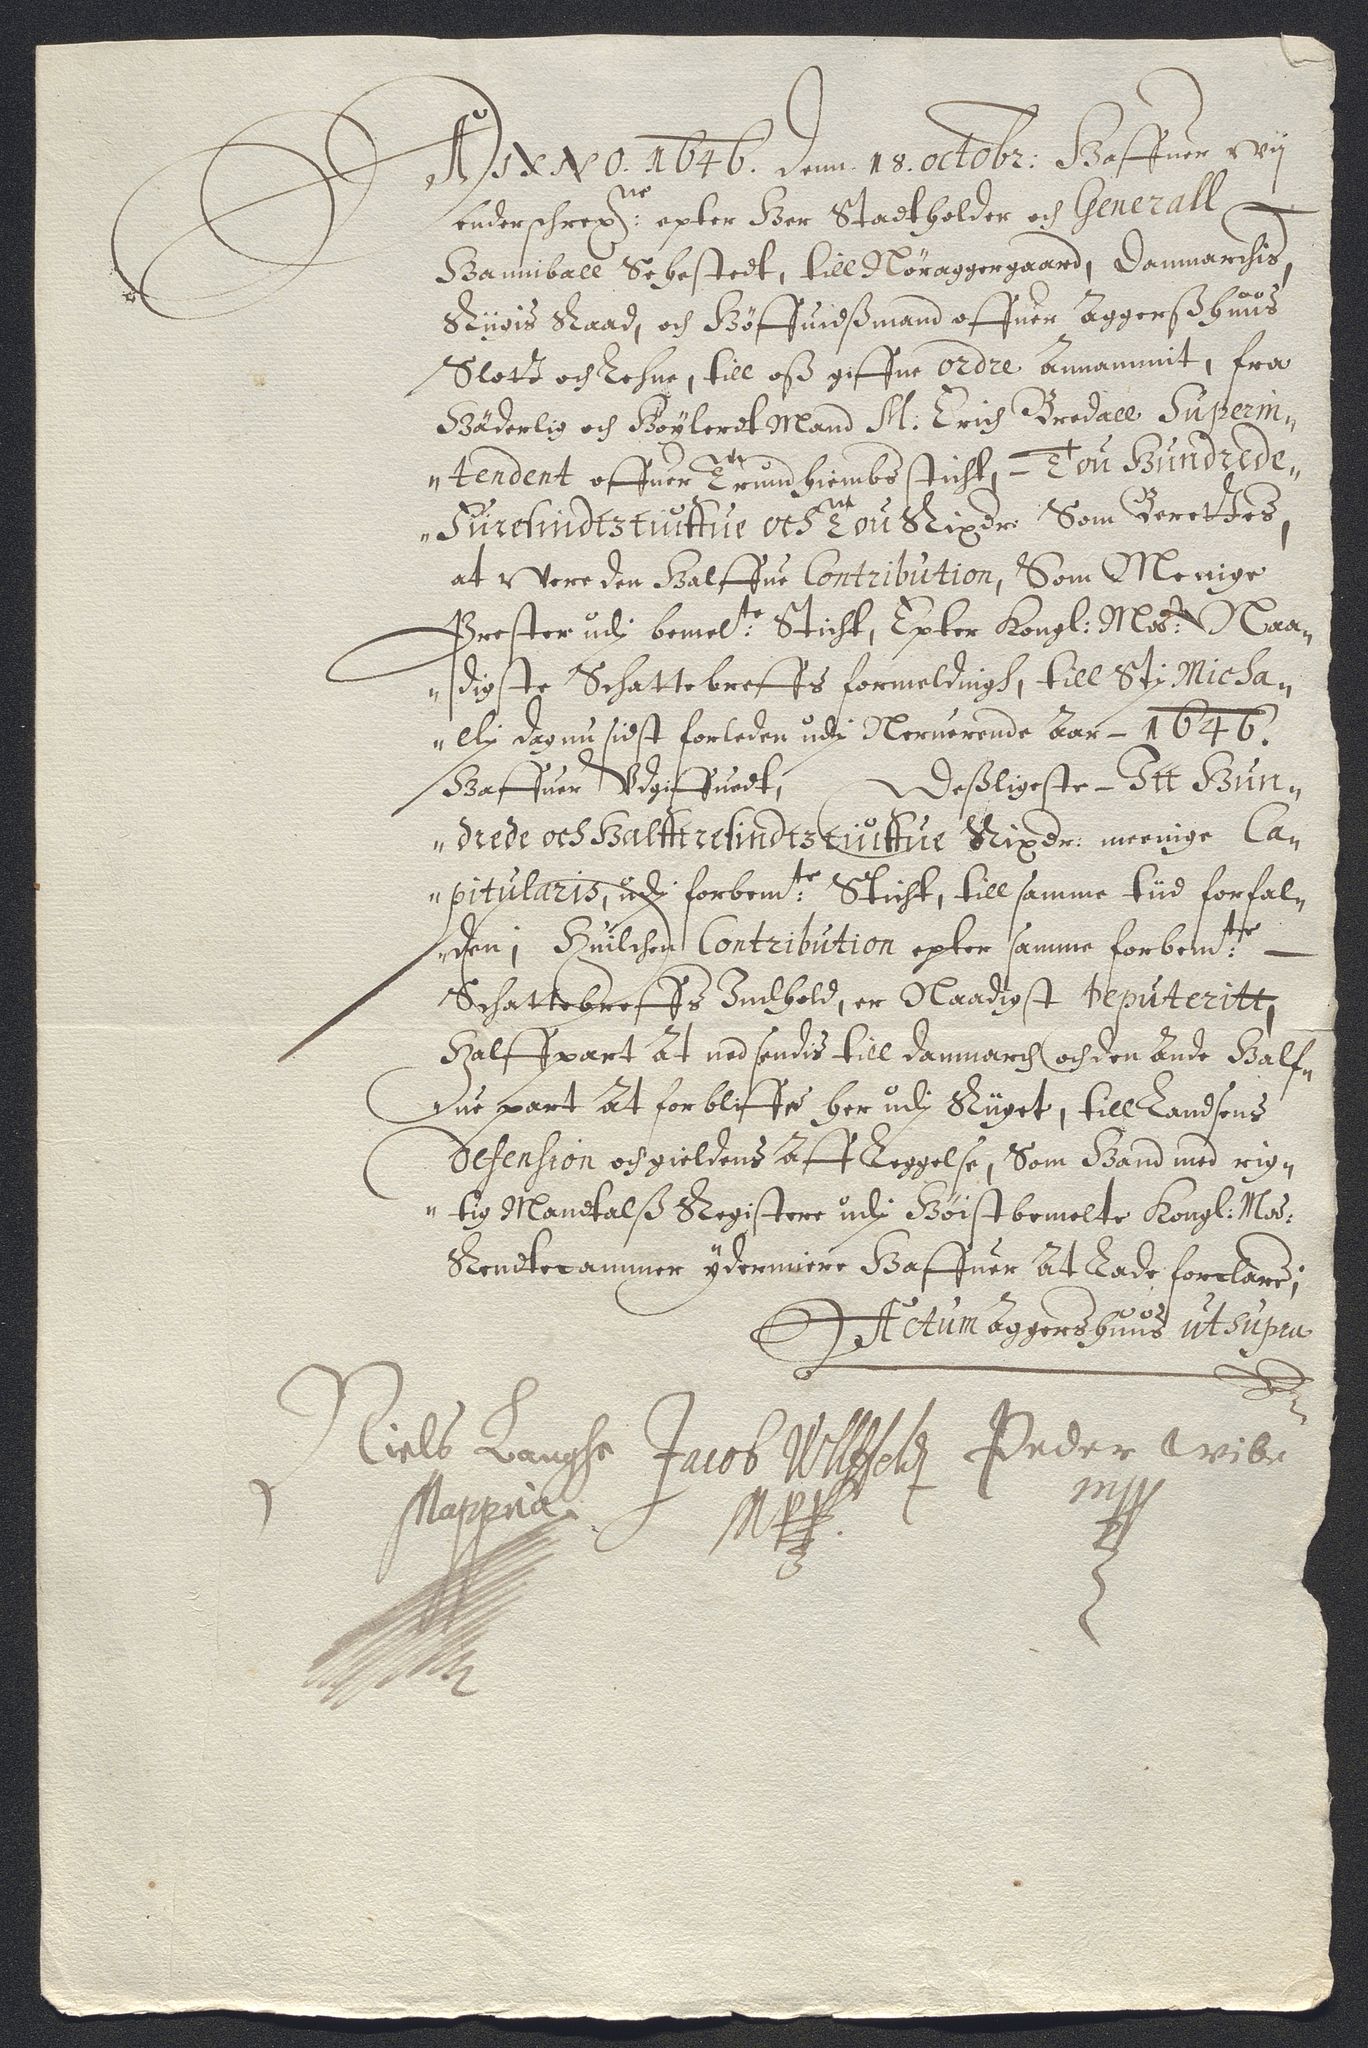 ANNO. 1646. denn. 18. octobr: Haffuer wij
underschreffne: epter Her Stadtholder och Generall
Hanniball Sehestedt, till Nöraggergaard, Danmarchis,
Rigis Raad, och Höffuidßmand offuer Aggerßhuus
Slott och Lehne, till oß giffne ordre Annammit, fra
Häderlig och Höylerdt Mand M: Erich Bredall Superin„
„tendent offuer Trundhiembs sticht, – Tou Hundrede„
„Füresindtztiuffue och Tou Rixdr: Som Berettes,
at Were den Halffue Contribution, Som Menige
Prester udj bemelte: Sticht, Epter Kongl: Mas: Naa„
„digste Schattebreffs formeldingh, till Stj Micha„
„elij dag nu sidst forleden udj Neruerende Aar – 1646.
Haffuer Udgiffuedt, Deßligeste – Itt Hun„
„drede och Halfftresindtztiuffue Rixdr: meenige Ca„
„pitularis, udj forbemte: Sticht, till samme tiid forfal„
„den; Huilchen Contribution epter samme forbemte: –
Schattebreffs Indhold, er Naadigst deputeritt,
Halffpart At nedsendis till danmarch och den Ande Half„
fue part At forbliffe her udj Riget, till Landsens
Defension och gieldens Aff Leggelse, Som Hand med rig„
„tig Mandtalß Registere udj Höistbemelte Kongl: Mas:
Rendtecammer ydermiere Haffuer At Lade forclare;
Actum Aggershuus ut supra
Niels Langhe Jacob Ulffeldt Peder Wibe
Mappria Mpp. mpp